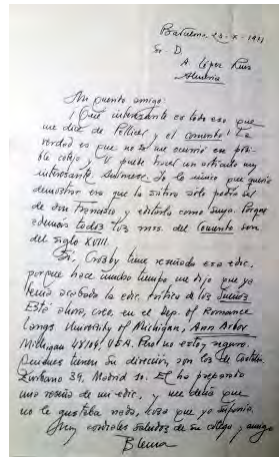 Sr. D.
A. López Ruiz
Almería
Mi querido amigo:
¡Qué interesante es todo eso que
me dice de Pellicer y el comento! La
verdad es que no se me ocurrió ese
cotejo. V. puede hacer un artículo muy
interesante.
demostrar era que la sátira sólo podía ser
de don Francisco y editarla como suya. Porque
además todos los mss. del Comento son
del siglo XVIII.
Sí, Crosby tiene reseñada esa edic.
porque hace mucho tiempo me dijo que ya
tenía acabada la edic. crítica de los Sueños.
Está ahora, creo, en el Dep. of Romance
Langs. University of Michigan, Ann Arbor
Michigan 48104, USA. Pero no estoy seguro.
Quienes tienen su dirección son los de Castalia
Zurbano 39, Madrid 10. Él ha preparado
una reseña de mi edic. y me decía que
no le gustaba nada, cosa que ya suponía.
Muy cordiales saludos de su colega y amigo
Blecua